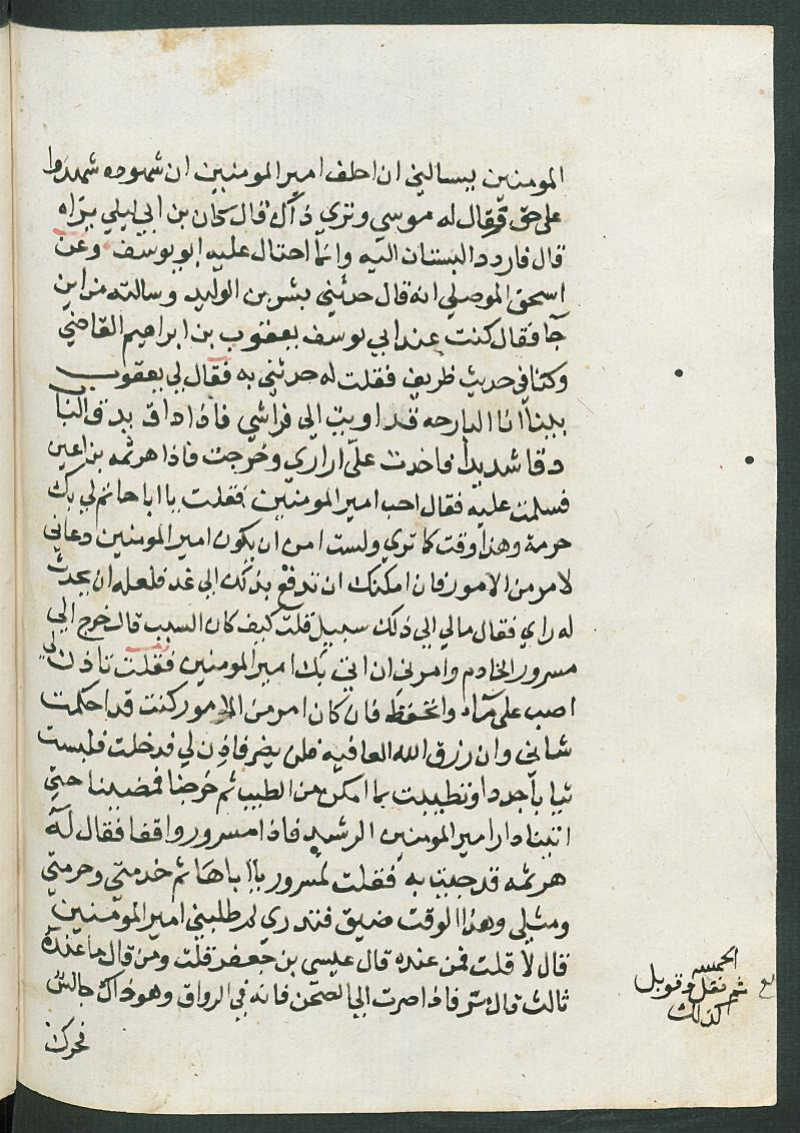 المومنين يسالني ان احلف امير المومنين ان شهوده شهدوا
على حق فقال له موسي وتري ذاك قال كان بن ابي ليلي يراه
قال فاردد البستان اليه وانما احتال عليه ابو يوسف وعن
اسحق الموصلي انه قال حدثني بشر بن الوليد وسالته من اين
جا فقال كنت عند ابي يوسف يعقوب بن ابراهيم القاضي
وكنا في حديث ظريف فقلت له حدثني به فقال لي يعقوب
بينا انا البارحه قد اويت الي فراشي فاذا داق يدق الباب
دقا شديدا فاخدت علي ازاري وخرجت فاذا هرثمه بن اعين
فسلمت عليه فقال اجب امير المومنين فقلت يا ابا حاتم لي بك
حرمة وهذا وقت كما تري ولست امن ان يكون امير المومنين دعاني
لامر من الامور فان امكنك ان تدفع بذلك الي غد فلعله ان يحدث
له راي فقال مالي الي ذلك سبيل قلت كيف كان السبب قال خرج الي
مسرور الخادم وامرني ان اتي بك امير المومنين فقلت تاذن لي
اصب علي مآء واتحفظ فان كان امر من الامور كنت قد احكمت
شاني وان رزق الله العافيه فلن يضر فاذن لي فدخلت فلبست
ثيابا جددا وتطيبت بما امكن من الطيب ثم خرجنا فمضينا حتي
اتينا دار امير المومنين الرشيد فاذا مسرور واقفا فقال له
هرثمه قد جيت به فقلت لمسرور يا ابا هاشم خدمتي وحرمتي
وميلي وهذا الوقت ضيق فتدري لم طلبني امير المومنين
قال لا قلت فمن عنده قال عيسي بن جعفر قلت ومن قال ما عنده
ثالث قال مر فاذا صرت الي الصحن فانه في الرواق وهو ذاك جالس
فحرك
الخمسه
ثم نقل وقوبل
كذلك